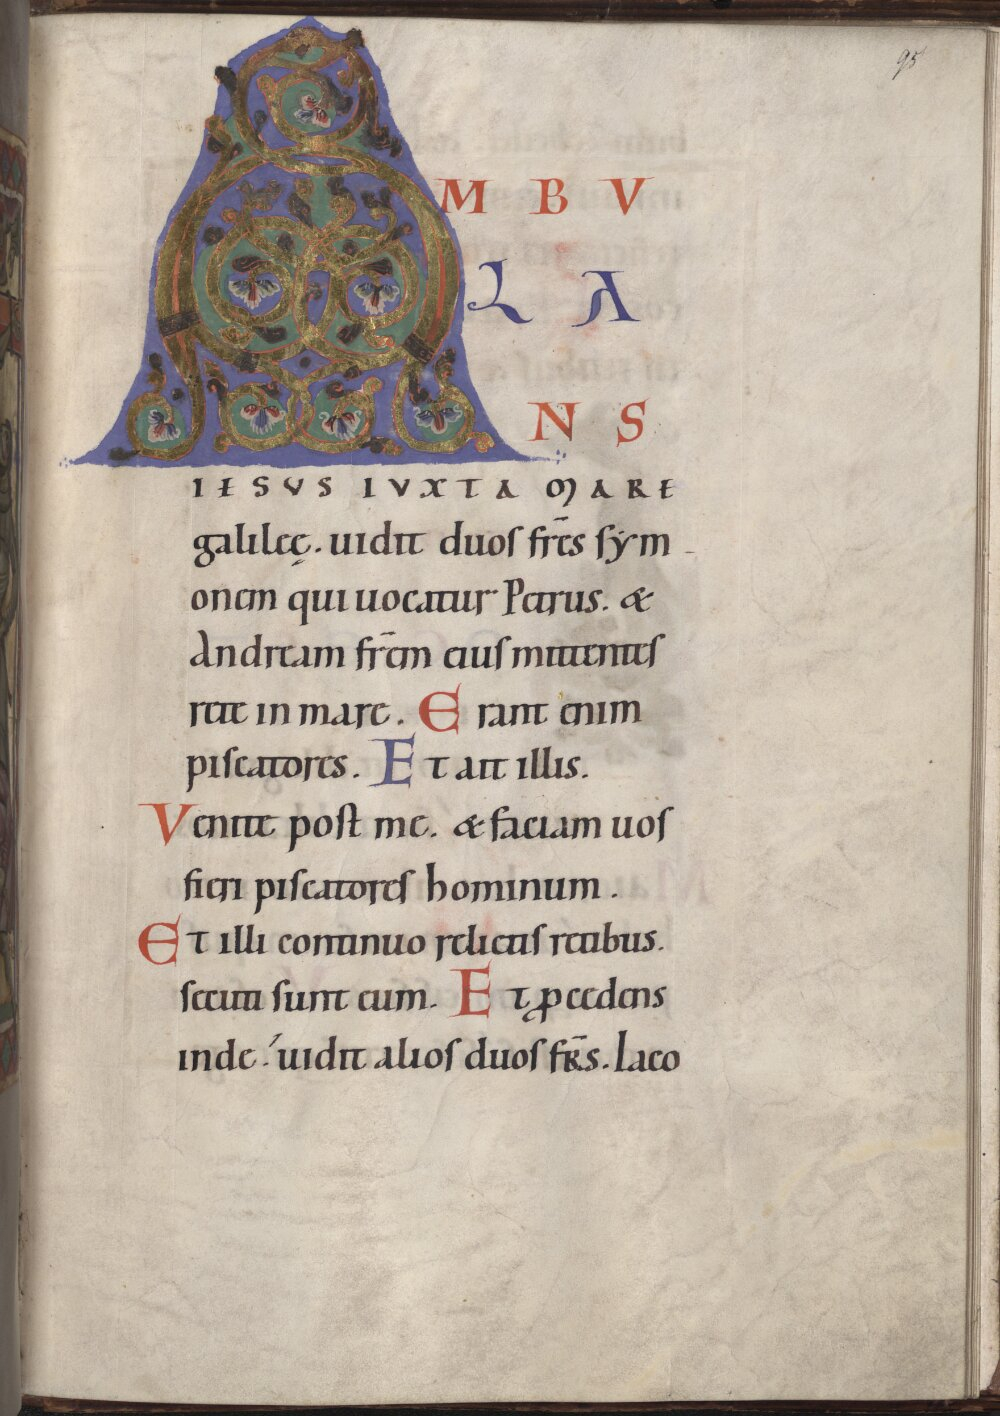 95
A M B V
L A
N S
IESVS IVXTA MARE
galileę. uidit duos fr̄es sẏm-
onem qui uocatur Petrus. &
Andream fr̄em eius mittentes
rete in mare. Erant enim
piscatores. Et ait illis.
Venite post me. & faciam uos
fieri piscatores hominum.
Et illi continuo relictis retibus.
secuti sunt eum. Et ꝓcedens
inde. uidit alios duos fr̄s. Iaco